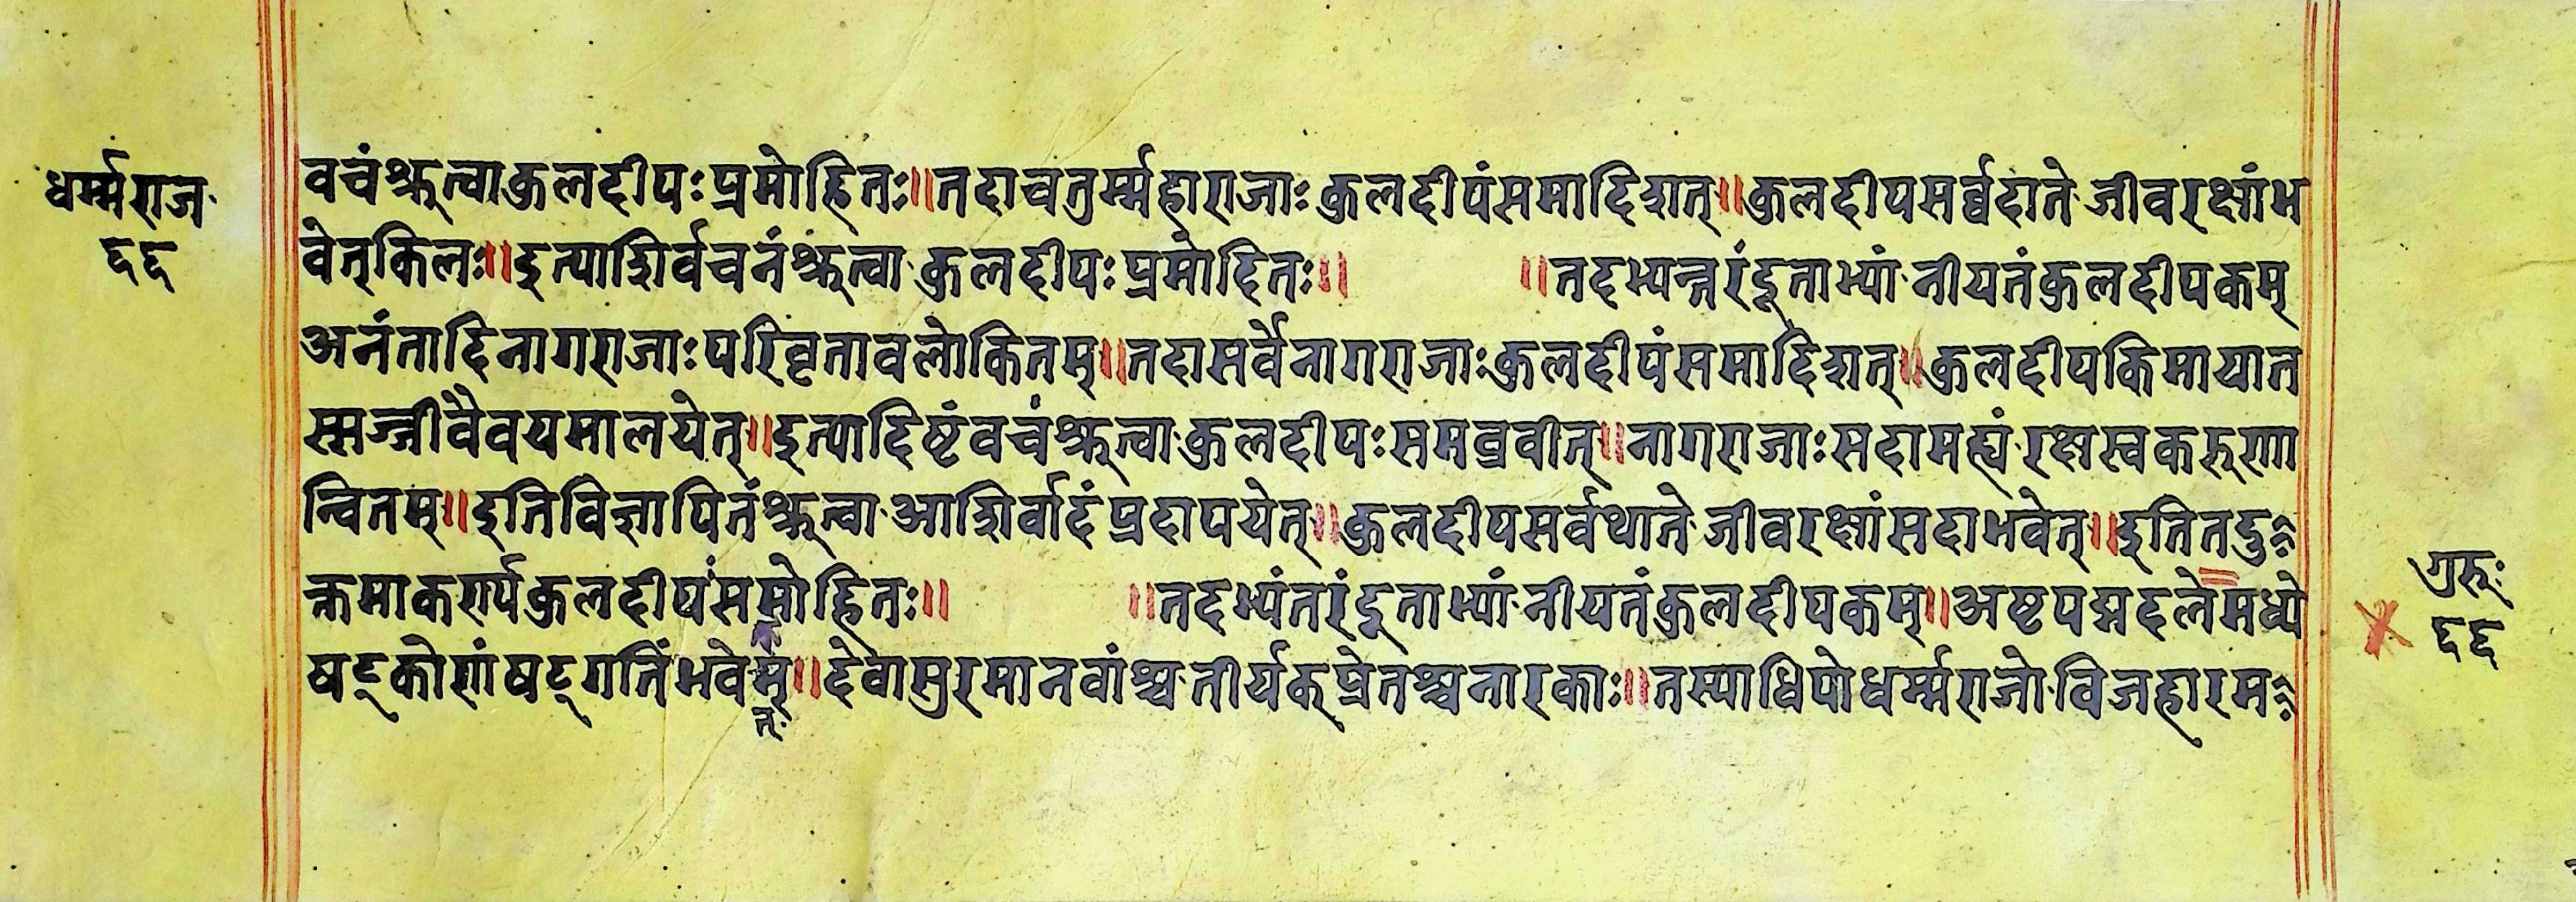 धर्म्मराज
६६
वचंश्रुत्वाकुलदीपःप्रमोहितः॥तदाचतुर्म्महाराजाःकुलदीपंसमादिशत्॥कुलदीपसर्व्वदातेजीवरक्षांभ
वेत्किलः॥इत्याशिर्वचनंश्रुत्वाकुलदीपःप्रमोदितः॥ ॥तदभ्यन्तरंदूताभ्यांनीयतंकुलदीपकम्
अनंतादिनागराजाःपरिवृतावलोकितम्॥तदासर्वैनागराजाःकुलदीपंसमादिशत्॥कुलदीपकिमायात
स्मज्जीवैवयमालयेत्॥इत्यादिष्टंवचंश्रुत्वाकुलदीपःसमव्रवीत्॥नागराजाःसदामह्यंरक्षस्वकरुणा
न्वितम्॥इतिविज्ञापितंश्रुत्वाआशिर्वादंप्रदापयेत्॥कुलदीपसर्वथातेजीवरक्षांसदाभवेत्॥इतितदु
क्तमाकर्ण्यकुलदीपंसमोहितः॥ ॥तदभ्यंतरंदूताभ्यांनीयतंकुलदीपकम्॥अष्टपद्मदलेमध्ये
षट्कोणंषट्गतिंभवेम्॥देवासुरमानवांश्चतीर्यक्प्रेतश्चनारकाः॥तस्याधिपोधर्म्मराजोविजहारम
त्
गुरुः
६६